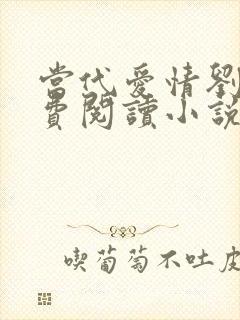 當代愛情劉
費閱讀小說
喫葡萄不吐皮